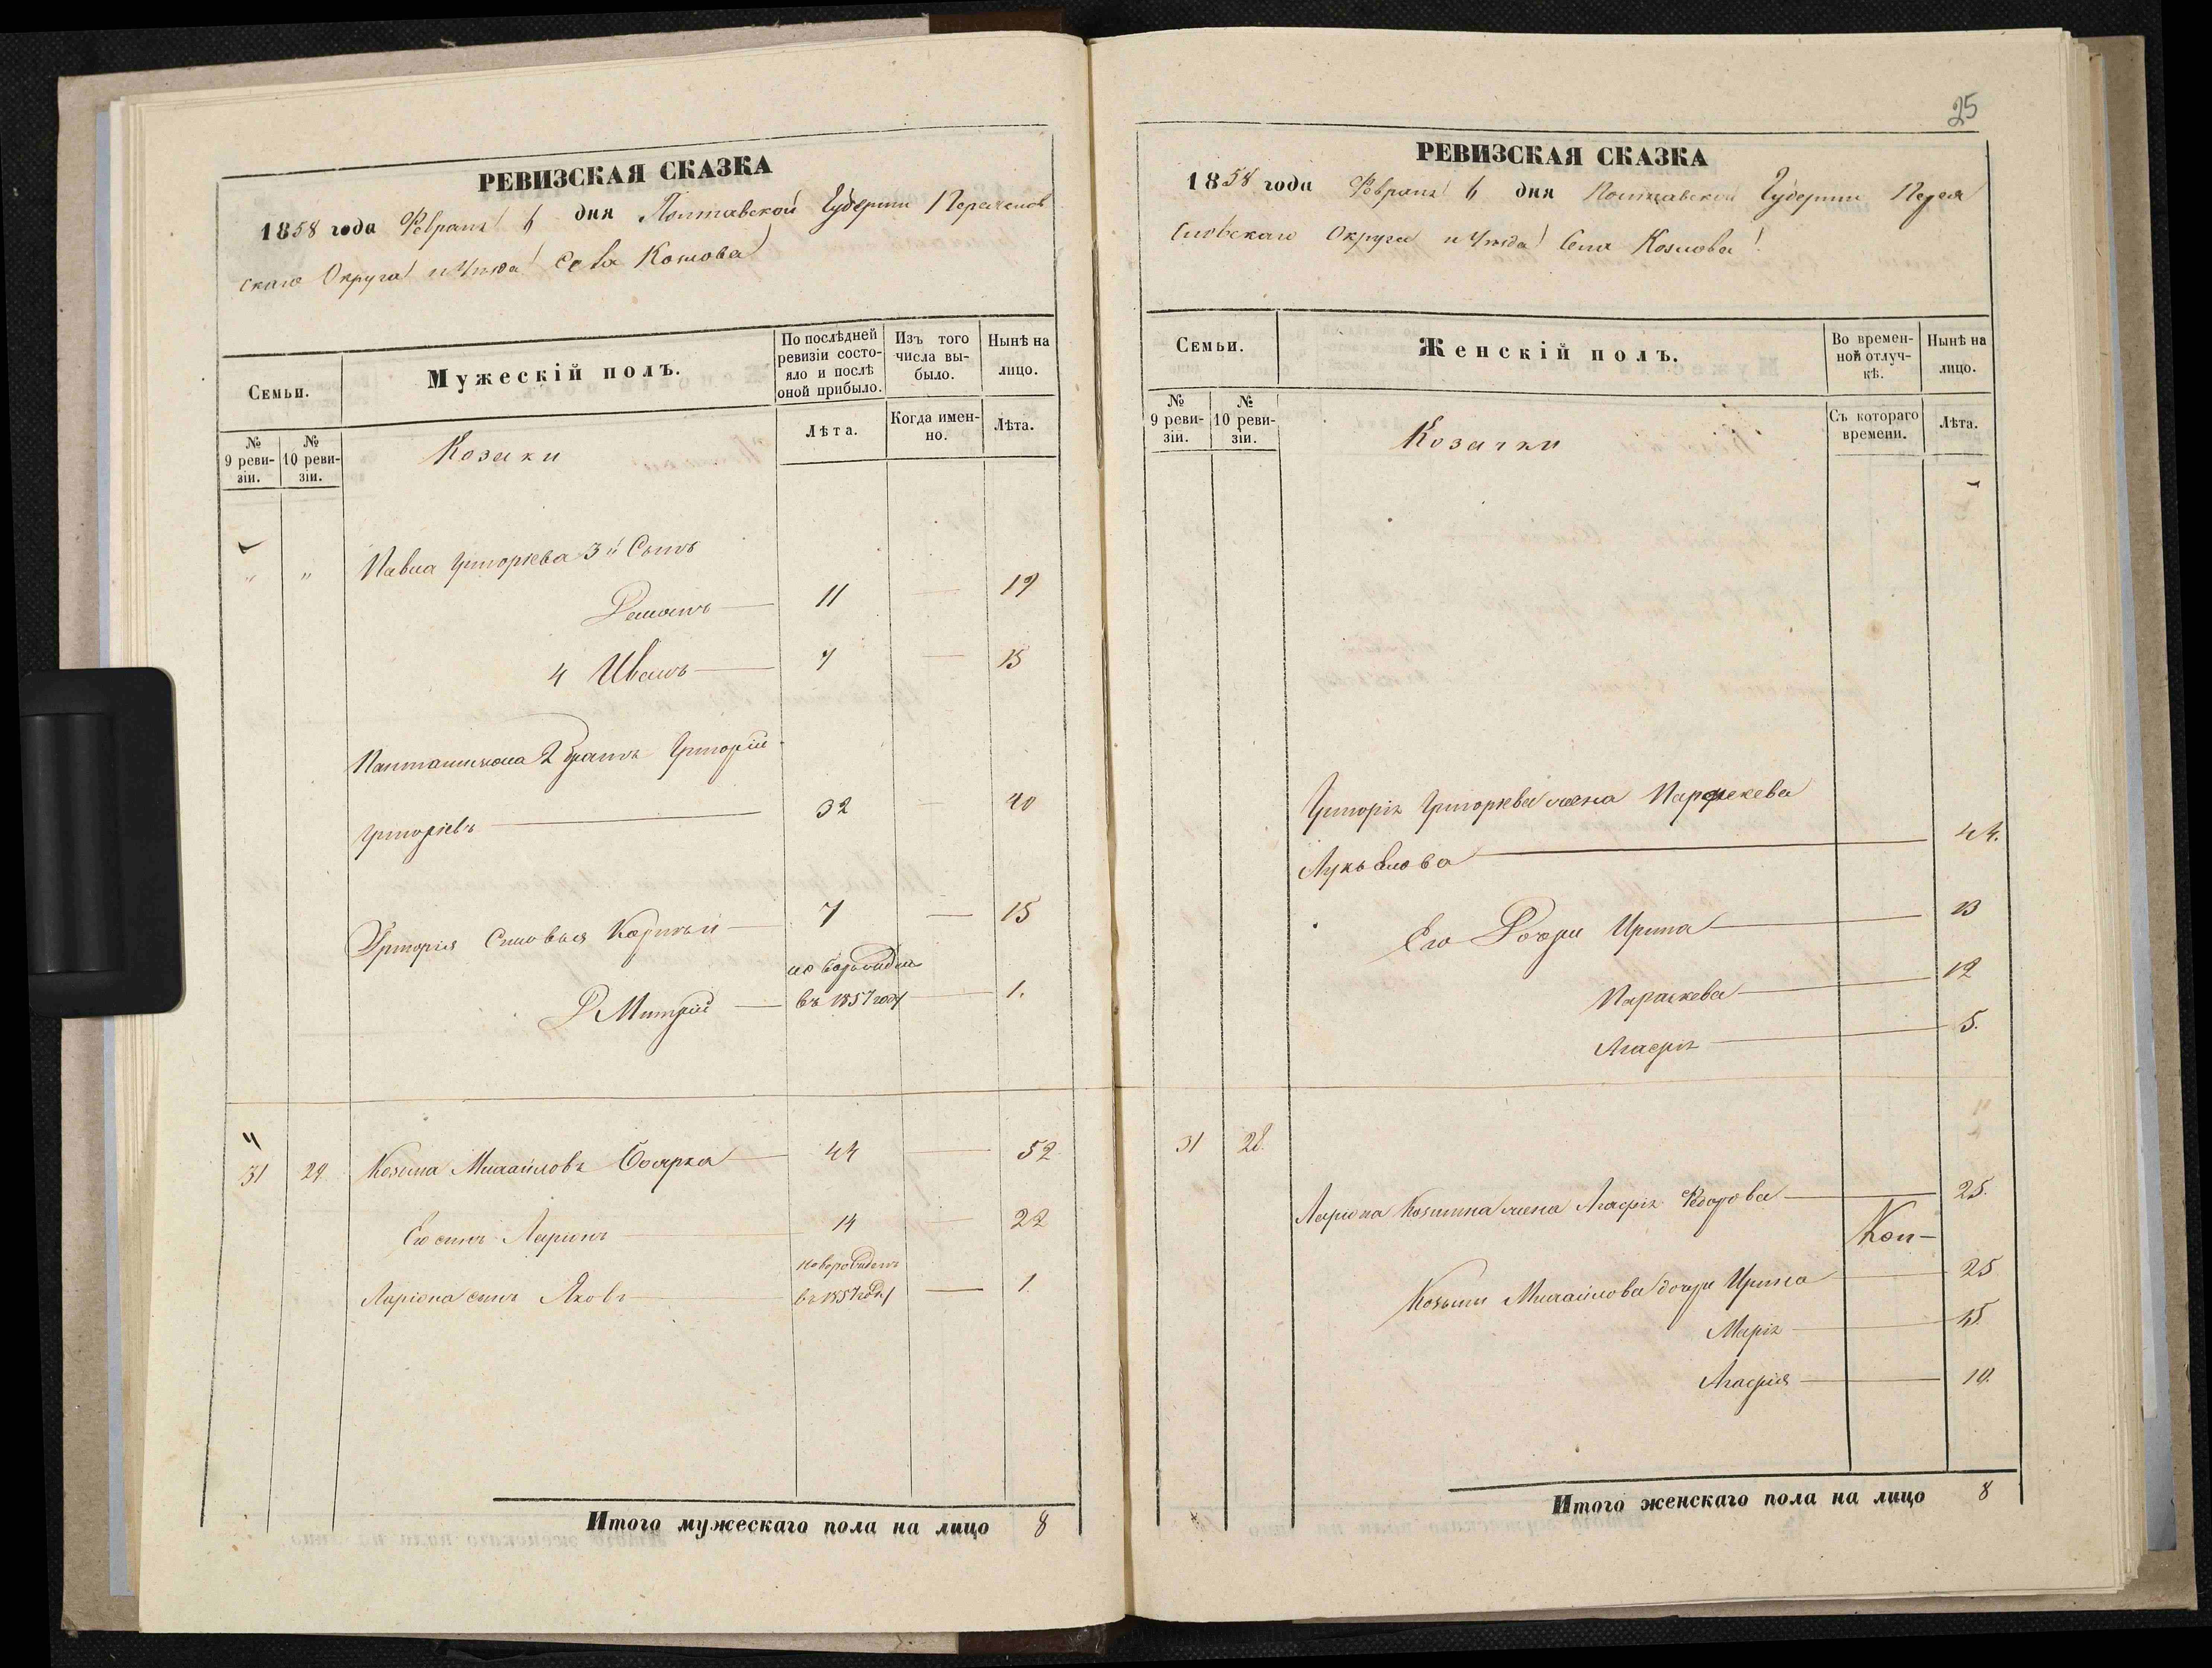 РЕВИЗСКАЯ СКАЗКА
1858 года Февраля 6 дня Полтавской Губернии Переяслов
скаго Округа и Уезда Села Козлова
Семьи.
Мужескій полъ.
По послѣдней ревизіи состояло и послѣ оной прибыло.
Изъ того числа выбыло.
Нынѣ на лицо.
№ 9 ревизіи.
№ 10 ревизіи.
Козаки
Лѣта.
Когда именно.
Лѣта.
" " Павла Григорьева 3й Сынъ
Романъ 11 — 19
4 Иванъ 7 — 15
2 братъ Григорій
Григорьевъ 32 — 40
Григорія Сыновья 7 — 15
новорожден
Дмитрій въ 1857 году — 1.
31 29. Козьма Михайловъ Боярка 44 — 52
Его сынъ Ларіонъ 14 — 22
новорожденъ
Ларіона сынъ Яковъ въ 1857 году — 1.
Итого мужескаго пола на лицо 8
25
РЕВИЗСКАЯ СКАЗКА
1858 года Февраля 6 дня Полтавской Губернии Перея
словскаго Округа и Уезда Села Козлова
Семьи.
Женскій полъ.
Во временной отлучкѣ.
Нынѣ на лицо.
№ 9 ревизіи.
№ 10 ревизіи.
Козачки
Съ котораго времени.
Лѣта.
Григорія Григорьева жена Параскева
Лукьянова 44.
Его Дочери Ирина 13
Параскева 12
Агафія 5.
31 28.
Ларіона Козьмина жена Агафія Федорова 25.
Коп—
Козьмы Михайлова дочери Ирина 25
Марія 15.
Агафія 10.
Итого женскаго пола на лицо 8